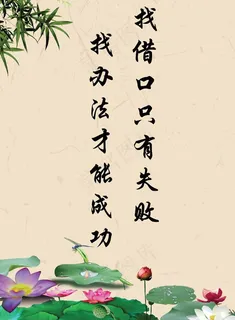 找借口只有失败
找办法才能成功